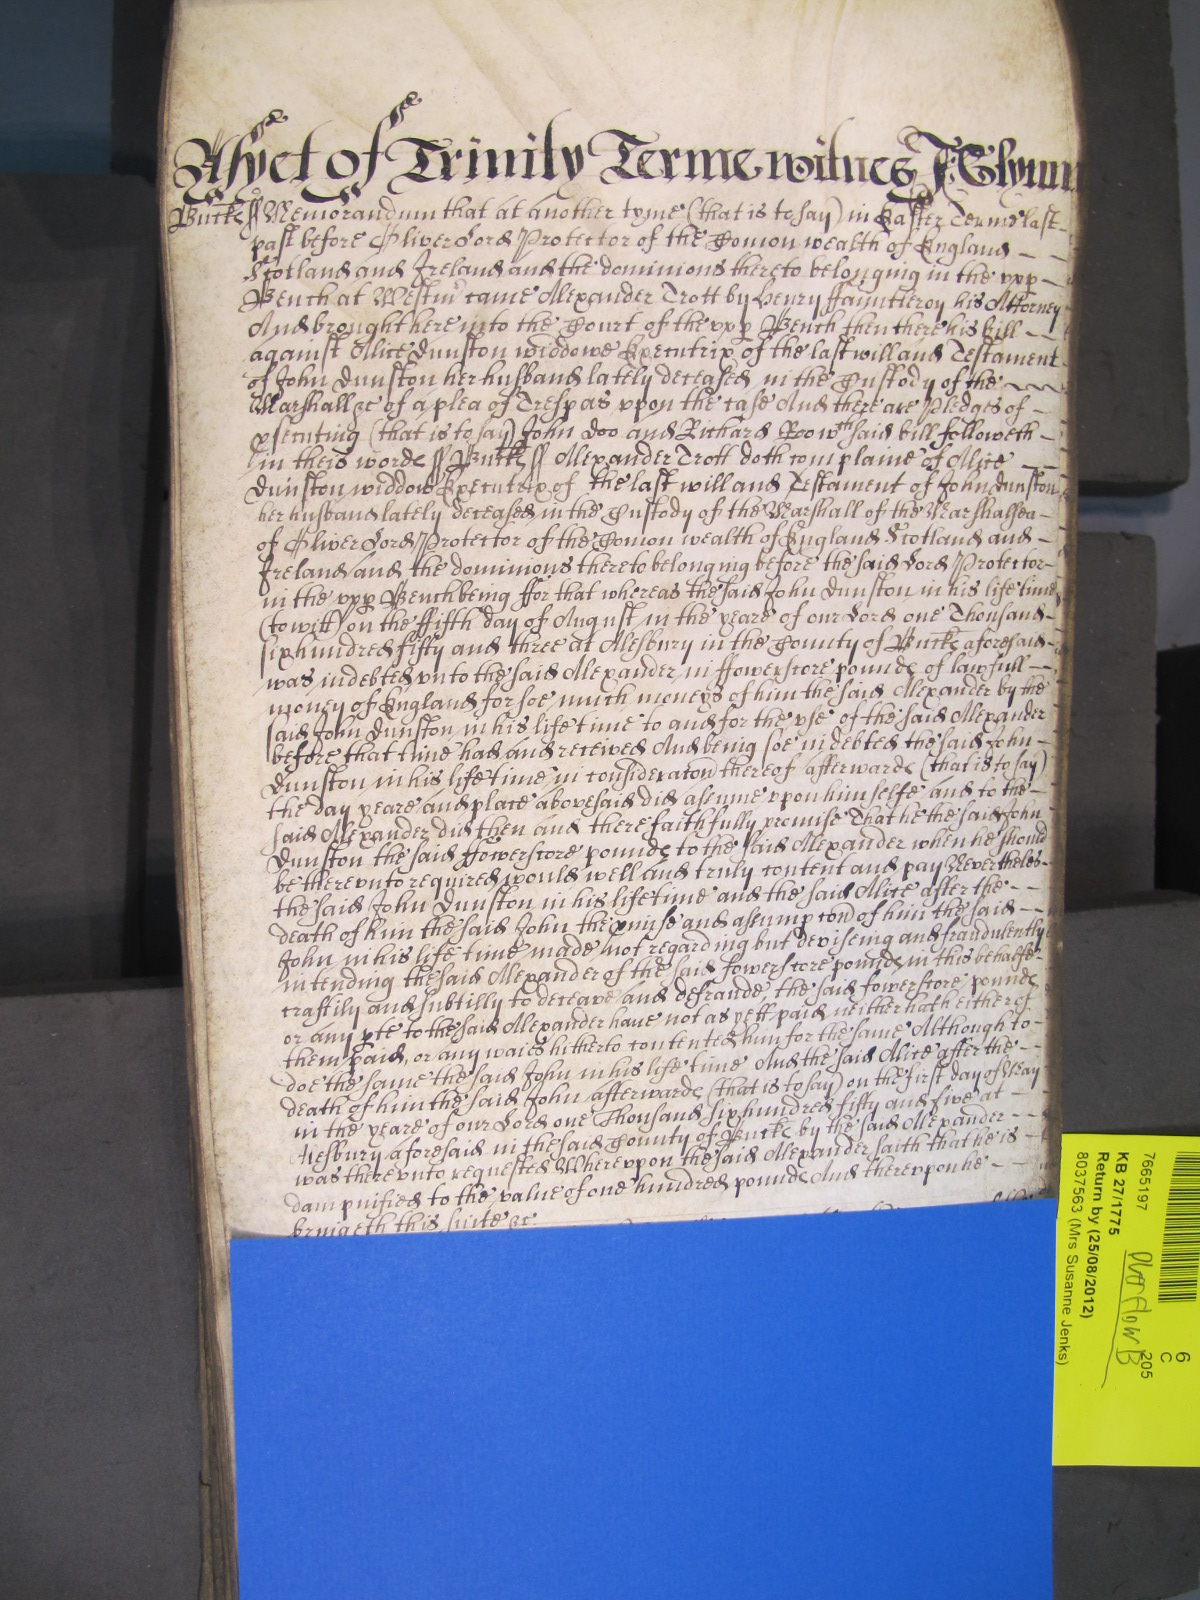 Yet of Trinity Terme witnes J: Glynn
Bucks ss Memorandum that at another tyme (that is to say) in Easter Terme last
past before Oliver Lord Protector of the Comon wealth of England
Scotland and Ireland and the dominions thereto belonging in the vpp
Bench at Westmr came Alexander Trott by Henry ffauntleroy his Attorney
And brought here into the Court of the vpp Bench then there his bill
against Alice Dunston widdowe Executrix of the last will and Testament
of John Dunston her husband lately deceased in the Custody of the
Marshall &c of a plea of Trespas vpon the case And there are Pledges of
psecuting (that is to say) John Doo and Richard Roo wth said bill followeth
in theis words ss Bucks ss Alexander Trott doth complaine of Alice
Dunston widdow Executrix of the last will and Testament of John Dunston
her husband lately deceased in the Custody of the Marshall of the Marshalsea
of Oliver Lord Protector of the Comon wealth of England Scotland and
Ireland and the dominions thereto belonging before the said Lord Protector
in the vpp Bench being ffor that whereas the said John Dunston in his life time
(to witt) on the ffifth day of August in the yeare of our Lord one Thousand
six hundred fifty and three at Alesbury in the County of Bucks aforesaid
was indebted vnto the said Alexander in ffowerscore pounds of lawfull
money of England for soe much moneys of him the said Alexander by the
said John Dunston in his life time to and for the vse of the said Alexander
before that time had and received And being soe indebted the said John
Dunston in his life time in consideracon thereof afterwards (that is to say)
the day yeare and place abovesaid did assume vpon himselfe and to the
said Alexander did then and there faithfully promise That he the said John
Dunston the said ffowerscore pounds to the said Alexander when he should
be therevnto required would well and truly content and pay Nevertheles
the said John Dunston in his life time and the said Alice after the
death of him the said John the pmise and assumpcon of him the said
John in his life time made not regarding but deviseing and fraudulently
intending the said Alexander of the said fowerscore pounds in this behalfe
craftily and subtilly to deceave and defraude, the said fowerscore pounds
or any pte to the said Alexander have not as yett paid, neither hath either of
them paid, or any waies hitherto contented him for the same Although to
doe the same the said John in his life time And the said Alice after the
death of him the said John afterwards (that is to say) on the first day of May
in the yeare of our Lord one Thousand six hundred fifty and five at
Alesbury aforesaid in the said County of Bucks by the said Alexander
was therevnto requested Wherevpon the said Alexander saith that he is
dampnified to the value of one hundred pounds And therevpon he
bringeth this suite &c
7665197
KB 27/1775
Return by (25/08/2012)
8037563 (Mrs Susanne Jenks)
Overflow B
205
6
C